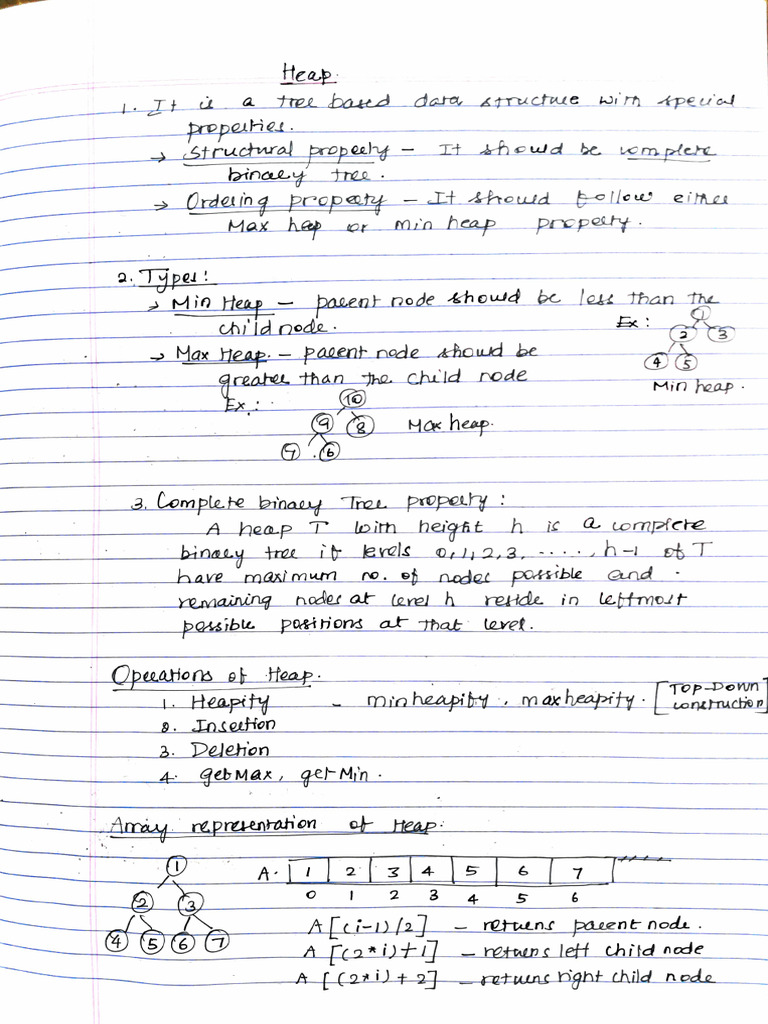 Heap.
1. It is a tree based data structure with special
properties.
→ Structural property - It should be complete
binary tree.
→ Ordering property - It should follow either
Max heap or min heap property.
2. Types:
→ Min Heap - parent node should be less than the
child node.
Ex:
1
2 3
4 5
Min heap.
→ Max Heap. - parent node should be
greater than the child node
Ex:
10
9 8
7 6
Max heap.
3. Complete binary Tree property:
A heap T with height h is a complete
binary tree if levels 0,1,2,3, ....., h-1 of T
have maximum no. of nodes possible and
remaining nodes at level h reside in leftmost
possible positions at that level.
Operations of Heap.
1. Heapify - minheapify, maxheapify. [TOP-DOWN
construction]
2. Insertion
3. Deletion
4. getMax, getMin.
Array representation of Heap.
1
2 3
4 5 6 7
A. 1 2 3 4 5 6 7
0 1 2 3 4 5 6
A[(i-1)/2] - returns parent node.
A[(2*i)+1] - returns left child node
A[(2*i)+2] - returns right child node